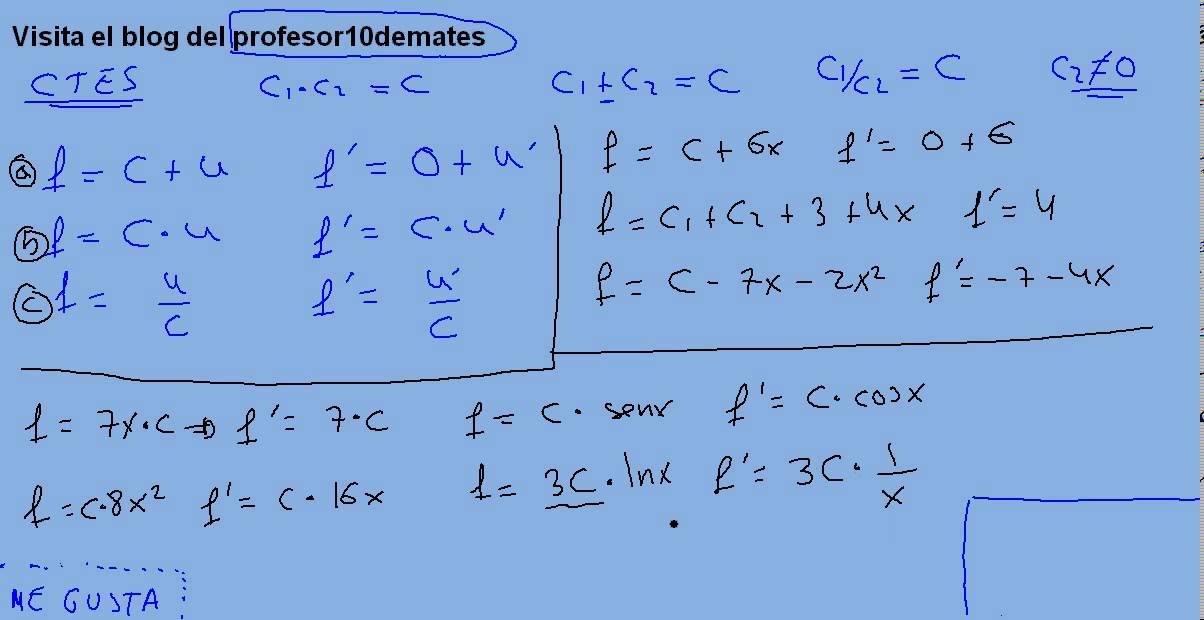 Visita el blog del profesor10demates
CTES C₁·C₂ = C C₁ ± C₂ = C C₁/C₂ = C C₂ ≠ 0
a f = C + u f' = 0 + u'
b f = C · u f' = C · u'
c f = u/C f' = u'/C
f = C + 6x f' = 0 + 6
f = C₁ + C₂ + 3 + 4x f' = 4
f = C - 7x - 2x² f' = -7 - 4x
f = 7x·C ⇒ f' = 7·C
f = C·8x² f' = C · 16x
f = C · senx f' = C · cosx
f = 3C · lnx f' = 3C · 1/x
ME GUSTA